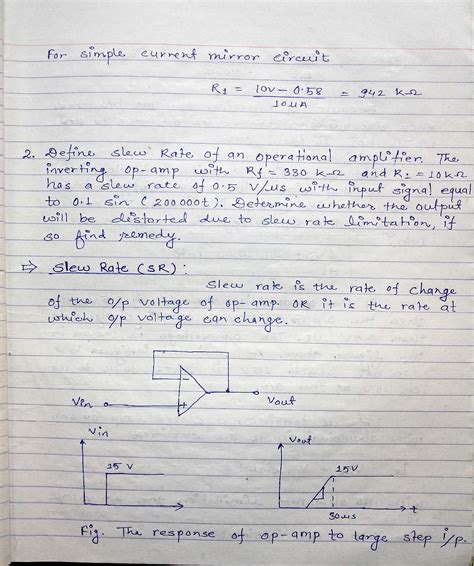 For simple current mirror circuit
R1 = 10V - 0.58 / 10μA = 942 k-Ω
2. Define Slew Rate of an operational amplifier. The
inverting op-amp with Rf = 330 k-Ω and Ri = 10kΩ
has a slew rate of 0.5 V/μs with input signal equal
to 0.1 sin (200000t). Determine whether the output
will be distorted due to slew rate limitation, if
so find remedy.
⇒ Slew Rate (SR) :
Slew rate is the rate of change
of the o/p voltage of op-amp OR it is the rate at
which o/p voltage can change.
Vin
Vout
Vin
Vout
15 V
15V
30μs
t
Fig. The response of op-amp to large step i/p.